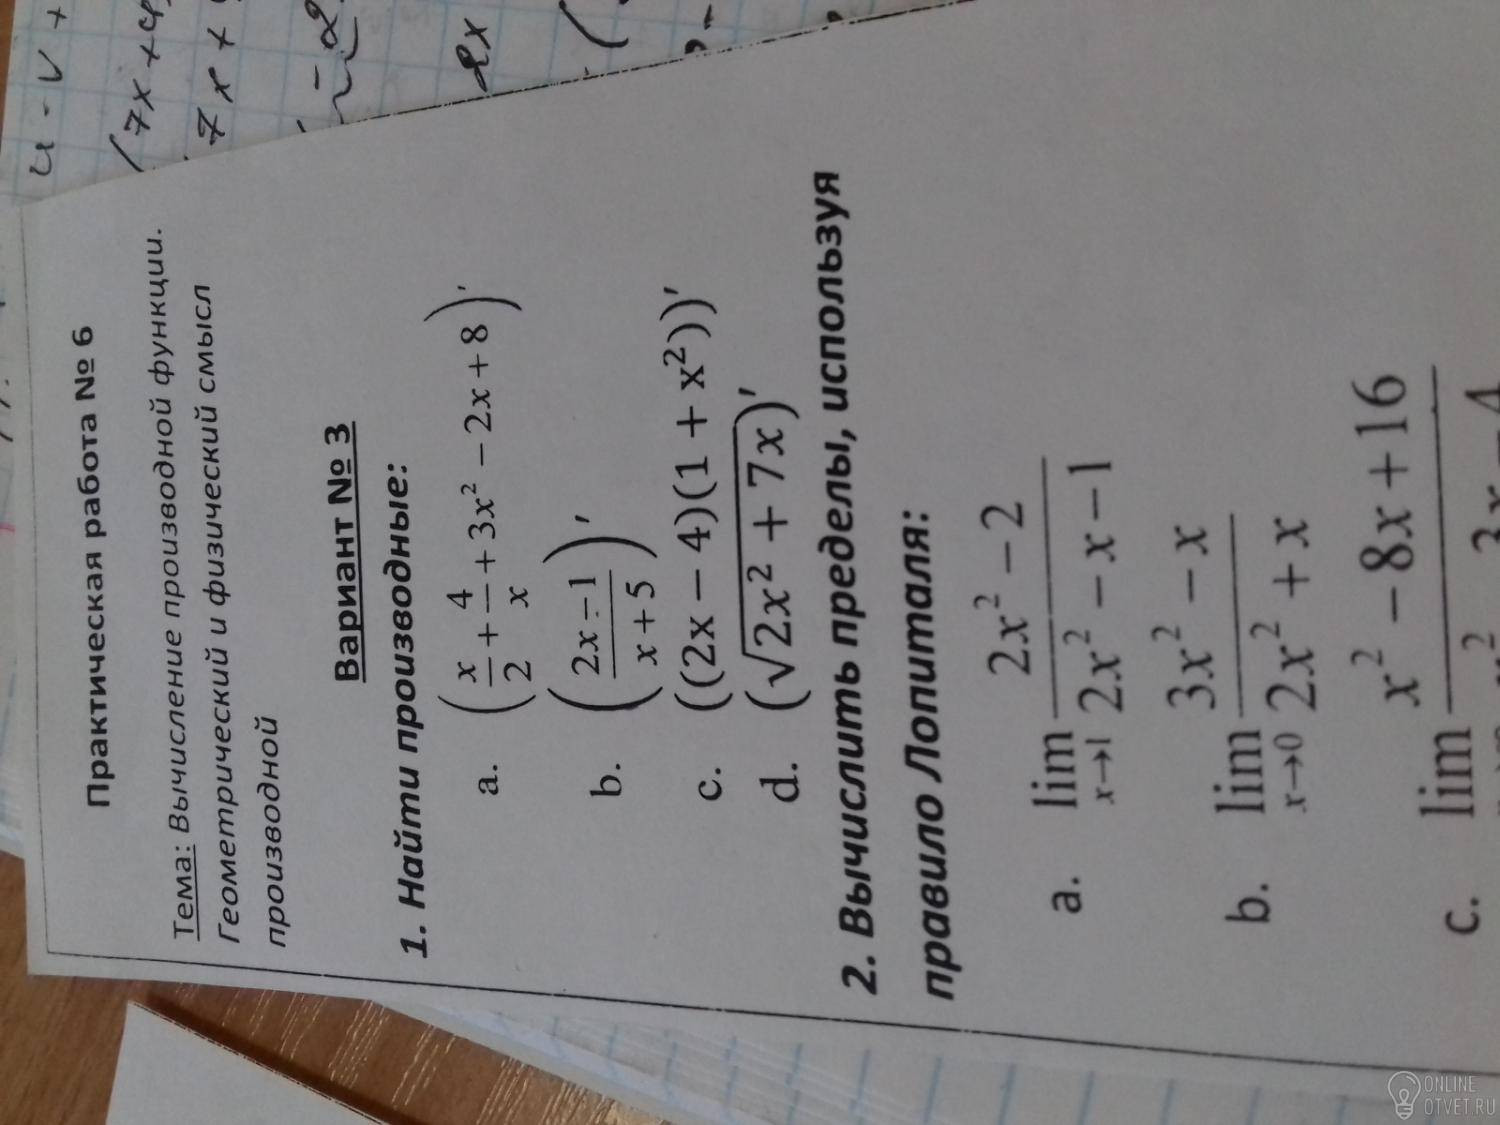 Практическая работа № 6
Тема: Вычисление производной функции.
Геометрический и физический смысл
производной
Вариант № 3
1. Найти производные:
a. (x/2 + 4/x + 3x² − 2x + 8)′
b. ((2x − 1)/(x + 5))′
c. ((2x − 4)(1 + x²))′
d. (√(2x² + 7x))′
2. Вычислить пределы, используя
правило Лопиталя:
a. lim x→1 (2x² − 2)/(2x² − x − 1)
b. lim x→0 (3x² − x)/(2x² + x)
c. lim x² − 8x + 16
u · v +
(7x +
7x +
2x
ONLINE
OTVET.RU